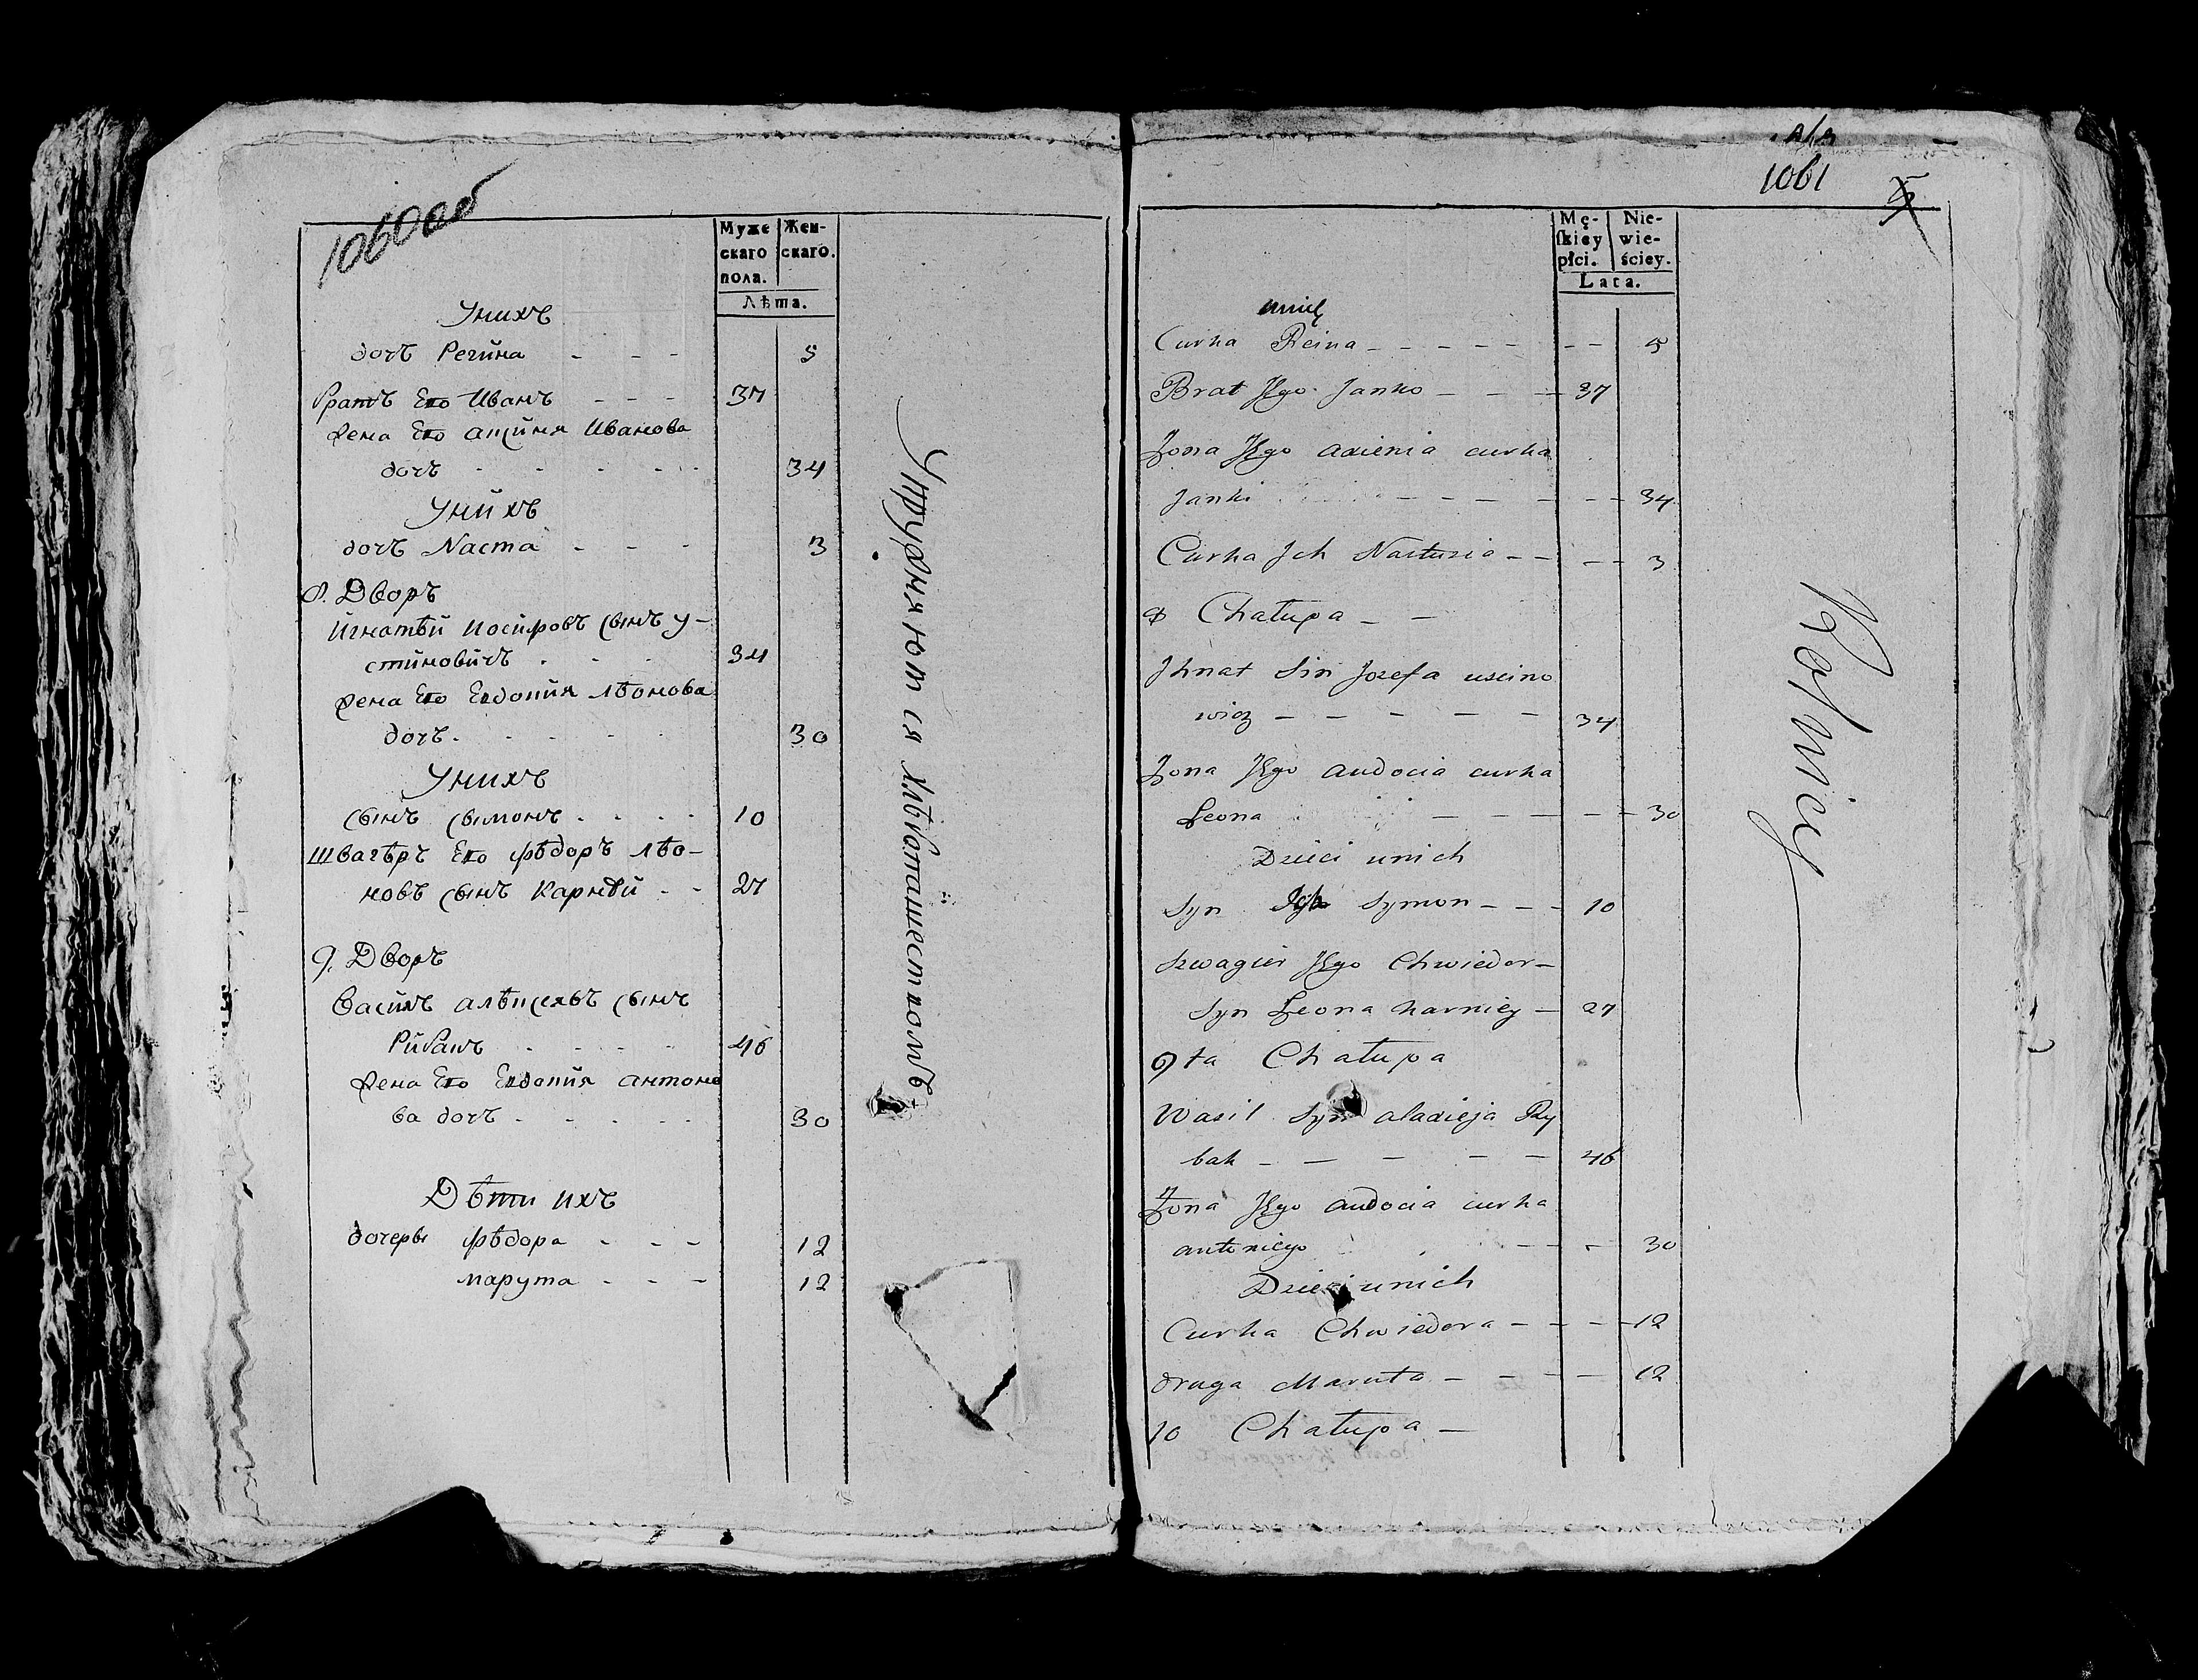 1060об
Муже Жен-
скаго скаго.
пола.
Лѣта.
Унихъ
дочъ Регина - - - 5
братъ Его Иванъ - - - 37
жена Его Иванова
дочъ - - - - - 34
Унихъ
дочъ Nаста - - - 3
8. Дворъ
Игнатѣй Иосифовъ сынъ У-
стиновичъ . - - 34
жена Его Евдокия лѣонова
дочъ. - - - - 30
Унихъ
сынъ сымонъ . - - - 10
Швагѣръ Его фѣдоръ лѣо-
новъ сынъ Карнѣй - - 27
9. Дворъ
Василъ алѣксѣевъ сынъ
Рибакъ - - - - 46
жена Его Евдокия антоно
ва дочъ - - - - 30
Дѣти ихъ
дочеры фѣдора - - - 12
марута - - - 12
Упружняются хлѣбопашествомъ
1061
5
Mę- Nie-
skiey wie-
płci. ściey.
Lata.
unich
Curka Reina - - - - - - - 5
Brat Jego Janko - - - 37
Żona Jego axienia curka
Janki - - - - - - 34
Curka Jch Nastuzia - - - - 3
8 Chałupa - -
Jhnat Sin Jozefa uscino
wicz - - - - - 34
Żona Jego audocia curka
Leona - - - - - 30
Dzieci unich
Syn Symon - - - 10
Szwagier Jego Chwiedor -
Syn Leona karniey - 27
9ta Chałupa
Wasil Syn alaxieja Ry
bak - - - - - 46
Żona Jego audocia curka
antoniego - - - 30
Dzieci unich
Curka Chwiedora - - - - 12
druga Maruta - - - - 12
10 Chałupa -
Rolnicy